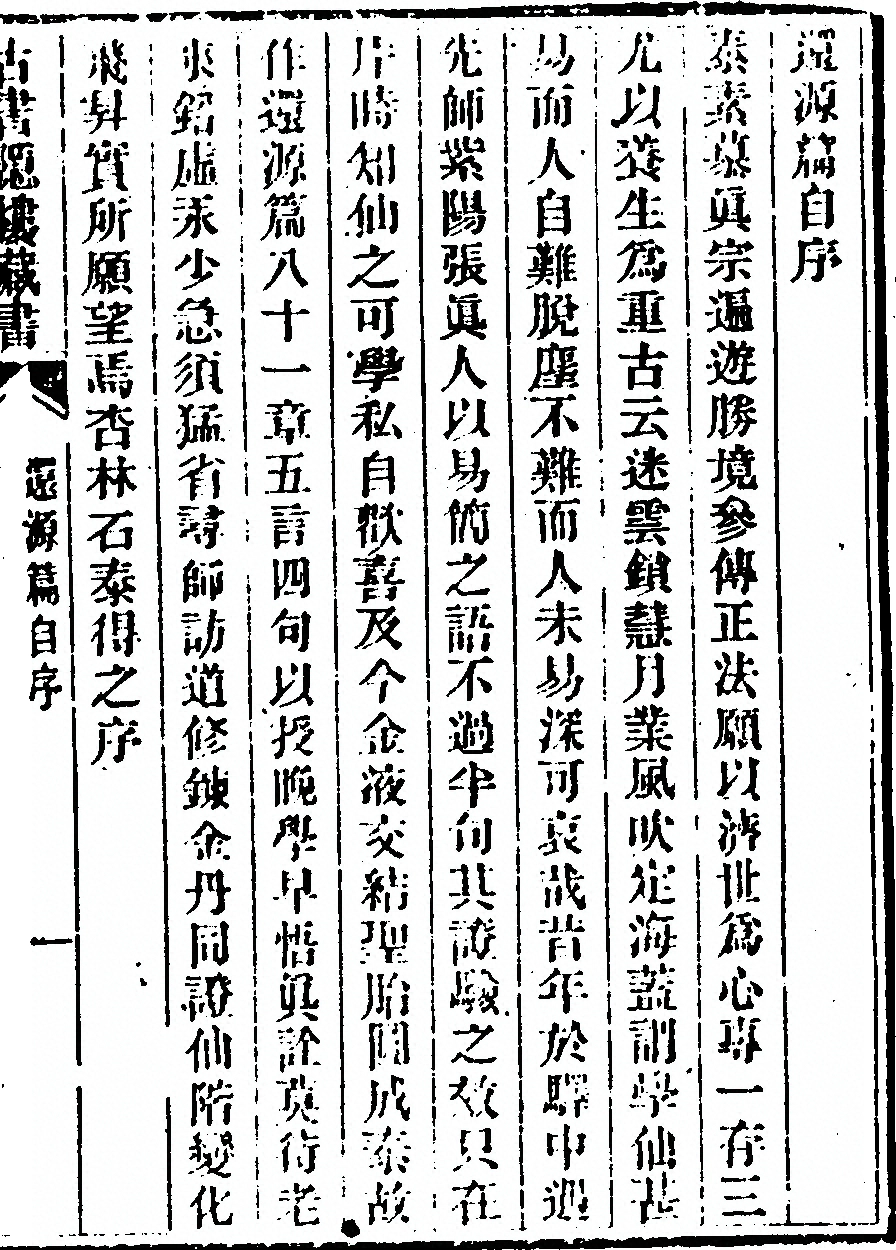 還源篇自序
泰素慕眞宗遍遊勝境參傳正法願以濟世爲心專一存三
尤以養生爲重古云迷雲鎖慧月業風吹定海蓋謂學仙甚
易而人自難脫塵不難而人未易深可哀哉昔年於驛中遇
先師紫陽張眞人以易簡之語不過半句其證驗之效只在
片時知仙之可學私自歡喜及今金液交結聖胎圓成泰故
作還源篇八十一章五言四句以授晚學早悟眞詮莫待老
來鉛虛汞少急須猛省尋師訪道修鍊金丹同證仙階變化
飛昇實所願望焉杏林石泰得之序
古書隱樓藏書
還源篇自序
一